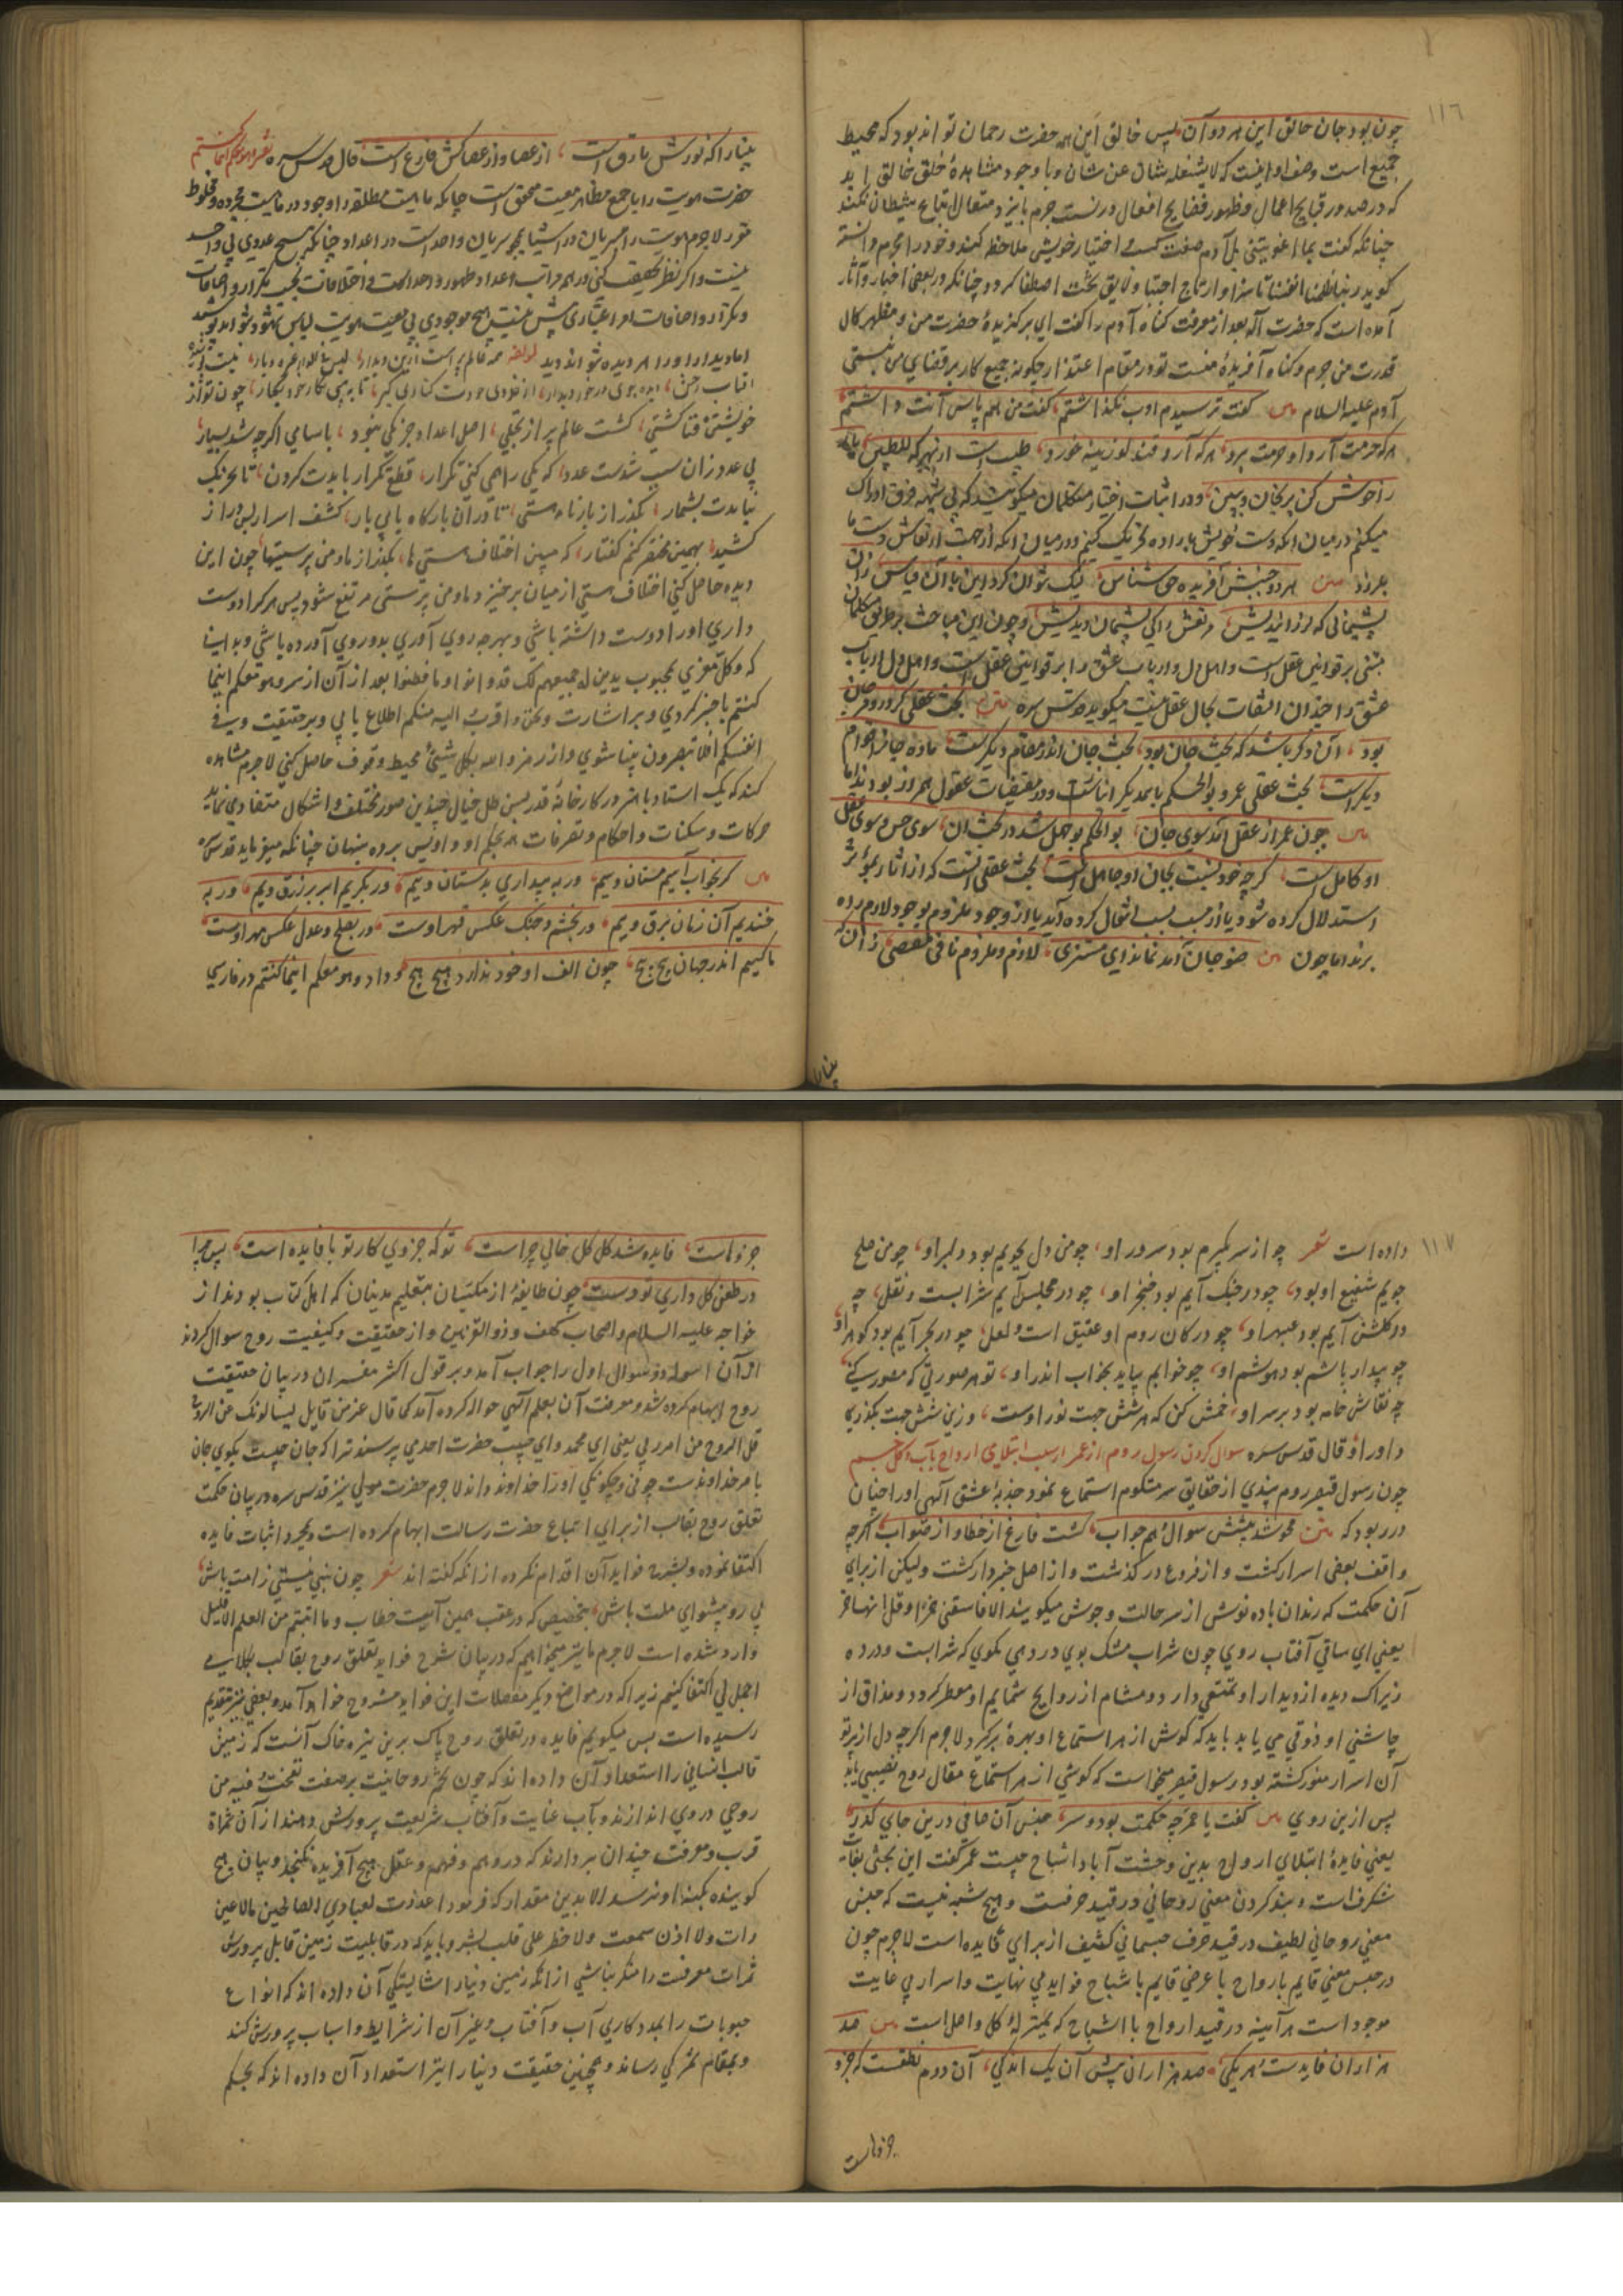 ١١٦
چون بود جان خالق این هر دو آن پس خالق این همه حضرت رحمان تواند بود که محیط
جمیع است وصف او اینست که لا یشغله شان عن شان و با وجود مشاهدهٔ خلق خالق اید
که در صدور قبایح اعمال و ظهور فضایح افعال
چنانکه گفت بما اغویتنی بل آدم صفت کسب اختیار خویش ملاحظه کنند و خود را مجرم دانسته
گوید ربنا ظلمنا انفسنا تا سزاوار تاج اجتبا و لایق تخت اصطفا گردد چنانکه در بعضی اخبار و آثار
آمده است که حضرت اله بعد از معرفت گناه آدم را گفت ای برگزیدهٔ حضرت من و مظهر کمال
قدرت من جرم و گناه آفریدهٔ منست تو در مقام اعتذار چگونه جمیع کار بر قضای من نبستی
آدم علیه السلام گفت ترسیدم ادب نگذاشتم گفت من هم پاس آنت داشتم
هر که حرمت آرد او حرمت برد هر که آرد قند لوزینه خورد طیبات از بهر که للطیبین یار
را خوش کن برنجان و ببین و در اثبات اختیار متکلمان میگویند که بی شبهه فرق ادراک
میکنم در میان آنکه دست خویش باراده تحریک کنیم و در میان آنکه از جهت ارتعاش دست ما
بلرزد متن هر دو جنبش آفریده حق شناس لیک نتوان کرد این با آن قیاس زان
پشیمانی که لرزانیدیش مرتعش را کی پشیمان دیدیش و چون این مباحث بر طریق متکلمان
مبنی بر قوانین عقل است و اهل دل و ارباب عشق را بر قوانین عقل
عشق را چندان التفات بحال عقل نیست میگوید قدس سره متن بحث عقلی گر در و مرجان
بود آن دگر باشد که بحث جان بود بحث جان اندر مقام دیگرست باده جان را قوام
دیگر است بحث عقلی عمر و بوالحکم با همدیگر و در مقتضیات عقول همراز بودند اما
چون عمر از عقل آمد سوی جان بوالحکم بوجهل شد در بحث آن سوی حس و سوی عقل
او کامل است گرچه خود نسبت بجان او جاهل است بحث عقلی آنست که از آثار بمؤثر
استدلال کرده شود یا از مسبب بسبب انتقال کرده آید یا از وجود ملزوم بوجود لازم ره
برند اما چون ضوء جان آمد نماند ای مستضی لازم و ملزوم نافی مقتضی زانکه
بینا را
بینا را که نورش بازق است از عصا و از عصاکش فارغ است قال قدس سره تفسیر و هو معکم اینما کنتم
حضرت هویت را با جمیع مظاهر معیت محقق است چنانکه ماهیت مطلقه را وجود در ماهیت مجرده و مخلوط
مقرر لاجرم هویت را سریان در اشیا همچو سریان واحد است در اعداد چنانکه هیچ عددی بی واحد
نیست و اگر نظر تحقیقت کنی در همه مراتب اعداد ظهور واحد است و اختلافات بحسب تکرار و اضافات
و تکرار و اضافات امر اعتباری بیش نیست هیچ موجودی بی معیت هویت لباس نپوشد
اما دیدار او را هم دیده
خویشتن فنا گشتی گشت عالم پر از تجلی اصل اعداد جز یکی نبود با سامی اگرچه شد بسیار
پی عدد زان سبب شدست عدد که یکی را همی کنی تکرار قطع تکرار بایدت کردن تا تحریک
نبایدت بشمار بگذر از بارنامه هستی تا در آن بارگاه یابی بار کشف اسرار بس دراز
کشید بهمین مختصر کنم گفتار که مبین اختلاف هستی ها بگذر از ما و من پرستیها چون این
دیده حاصل کنی اختلاف هستی از میان برخیزد و ما و من پرستی مرتفع شود پس هر کرا دوست
داری او را دوست داشته باشی و بهر چه روی آوری بدو روی آورده باشی و بدانیا
که و کل مغزی بمحبوب یدین له جمیعهم لک قد دانوا و ما فطنوا بعد از آن از سر و هو معکم اینما
کنتم با خبر گردی و بر اشارت و نحن اقرب الیه منکم اطلاع یابی و بر حقیقت و فی
انفسکم افلا تبصرون بینا شوی و از رمز و الله بکل شیئ محیط وقوف حاصل کنی لاجرم مشاهده
کند که یک استاد باهنر در کارخانهٔ قدر بس ظل خیال چندین صور مختلف و اشکال متغادی نماید
حرکات و سکنات و احکام و تصرفات همه بحکم او و او پس پرده پنهان چنانکه میفرماید قدس سره
گر بخواب آییم مستان وییم ور به بیداری بدستان وییم ور بگرییم ابر پر زرق وییم ور به
خندیم آن زمان برق وییم ور بخشم و جنگ عکس قهر اوست ور بصلح و عذر عکس مهر اوست
ما کییم اندر جهان پیچ پیچ چون الف او خود ندارد هیچ هیچ و داد و هو معکم اینما کنتم در فارسی
١١٧
داده است شعر چو از سر بگیرم بود سرور او چو من دل بجویم بود دلبر او چو من صلح
جویم شفیع او بود چو در جنگ آیم بود خنجر او چو در مجلس آیم شرابست و نقل چو
در گلشن آیم بود عبهر او چو در کان روم او عقیق است و لعل چو در بحر آیم بود گوهر او
چو بیدار باشم بود هوشم او چو خوابم بیاید بخواب اندر او تو هر صورتی که مصور کنی
چه نقاش خامه بود بر سر او خمش کن که هر شش جهت نور اوست وزین شش جهت بگذر کا
داور او قال قدس سره سوال کردن رسول روم از عمر از سبب ابتلای ارواح بآب و گل جسم
چون رسول قیصر روم پندی از حقایق سر مکتوم استماع نمود جذبهٔ عشق آلهی او را چنان
در ربود که متن محو شد پیشش سوال و هم جواب گشت فارغ از خطا و از صواب اگرچه
واقف بعضی اسرار گشت و از فروع در گذشت و از اصل خبردار گشت ولیکن از برای
آن حکمت که رندان باده نوش از سر حالت و جوش میگویند الا فاسقنی خمرا و قل انها خمر
یعنی ای ساقی آفتاب روی چون شراب مشک بوی در دهی بگوی که شرابست و درده
زیراک دیده از دیدار او تمتعی دارد و مشام از روایح شمایم او معطر گردد و مذاق از
چاشنی او ذوقی می یابد باید که گوش از هر استماع او بهره برگیرد لاجرم اگرچه دل از پرتو
آن اسرار منور گشته بود رسول قیصر میخواست که گوشی از هر استماع مقال روح نصیبی یابد
پس ازین روی گفت یا عمر چه حکمت بود و سر حبس آن صافی درین جای کدر
یعنی فایدهٔ ابتلای ارواح بدین وحشت آباد اشباح چیست عمر گفت این بحثی بغایت
شگرف است و بند کردن معنی روحانی در قید حرفست و هیچ شبه نیست که حبس
معنی روحانی لطیف در قید حرف جسمانی کثیف از برای فایده است لاجرم چون
در حبس معنی قایم بارواح با عرض قایم باشباح فواید بی نهایت و اسرار بی غایت
موجود است هر آینه در قید ارواح با اشباح که بمنزلهٔ کل و اصل است صد
هزاران فایدست هر یکی صد هزاران پیش آن یک اندکی آن دم نطقست که جزو
جزوهاست
جزوهاست فایده شد کل کل خالی چراست تو که جزوی کار تو با فایده است پس چرا
در طعن کل داری تو دست چون طایفهٔ از مکیان بتعلیم مدینان که اهل کتاب بودند از
خواجه علیه السلام و اصحاب کهف و ذوالقرنین و از حقیقت و کیفیت روح سوال کردند
از آن اسوله دو سوال اول را جواب آمد و بر قول اکثر مفسران در بیان حقیقت
روح ابهام کرده شد و معرفت آن بعلم آلهی حواله کرده آمد کما قال عز من قایل یسالونک عن الروح
قل الروح من امر ربی یعنی ای محمد و ای حبیب حضرت احدیتی پرسند ترا که جان چیست بگوی جان
با مر خداوندست چونی و چگونگی او را خداوند داند لاجرم حضرت مولی نیز قدس سره در بیان حکمت
تعلق روح بقالب از برای اتباع حضرت رسالت ابهام کرده است و بمجرد اثبات فایده
اکتفا نموده و بشرح فواید آن اقدام نکرده از آنکه گفته اند شعر چون نبی نیستی ز امت باش
پی رو پیشوای ملت باش بتخصیص که در عقب همین آیت خطاب و ما اوتیتم من العلم الا قلیل
وارد شده است لاجرم ما نیز میخواهیم که در بیان شرح فواید تعلق روح بقالب بکلامی
اجمالی اکتفا کنیم زیرا که در مواضع دیگر مفصلات این فواید مشروح خواهد آمد و بعضی نیز تقدیم
رسیده است پس میگوییم فایده در تعلق روح پاک برین تیره خاک آنست که زمین
قالب انسانی را استعداد آن داده اند که چون تخم روحانیت بر صفت نفخت فیه من
روحی در وی اندازند و بآب عنایت و آفتاب شریعت پرورش دهند از آن ثمراة
قرب و معرفت چندان بردارند که در وهم و فهم و عقل هیچ آفریده نگنجد و بیان هیچ
گوینده بکنه او نرسد الا بدین مقدار که فرمود اعددت لعبادی الصالحین ما لا عین
رات ولا اذن سمعت ولا خطر علی قلب بشر و باید که در قابلیت زمین قابل پرورش
ثمرات معرفت را منکر نباشی از آنکه زمین دنیا را شایستگی آن داده اند که انواع
حبوبات را بمددکاری آب و آفتاب و غیر آن از شرایط و اسباب پرورش کند
و بمقام ثمرگی رساند و همچنین حقیقت دنیا را نیز استعداد آن داده اند که بحکم